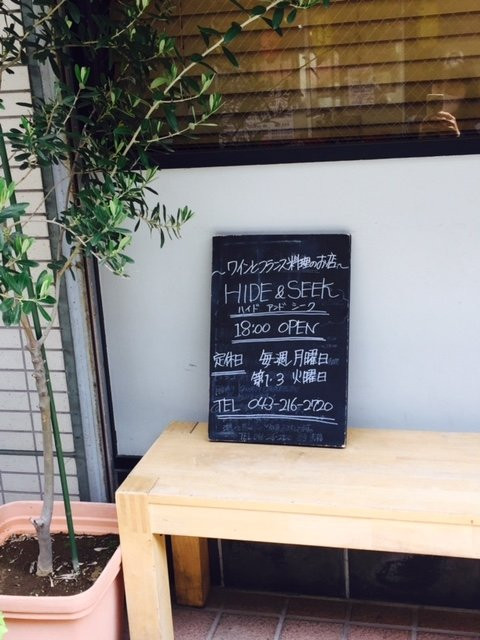 〜ワインとフランス料理のお店〜
HIDE & SEEK
ハイド アンド シーク
18:00 OPEN
定休日 毎週月曜日
第1.3 火曜日
TEL 043-216-2720